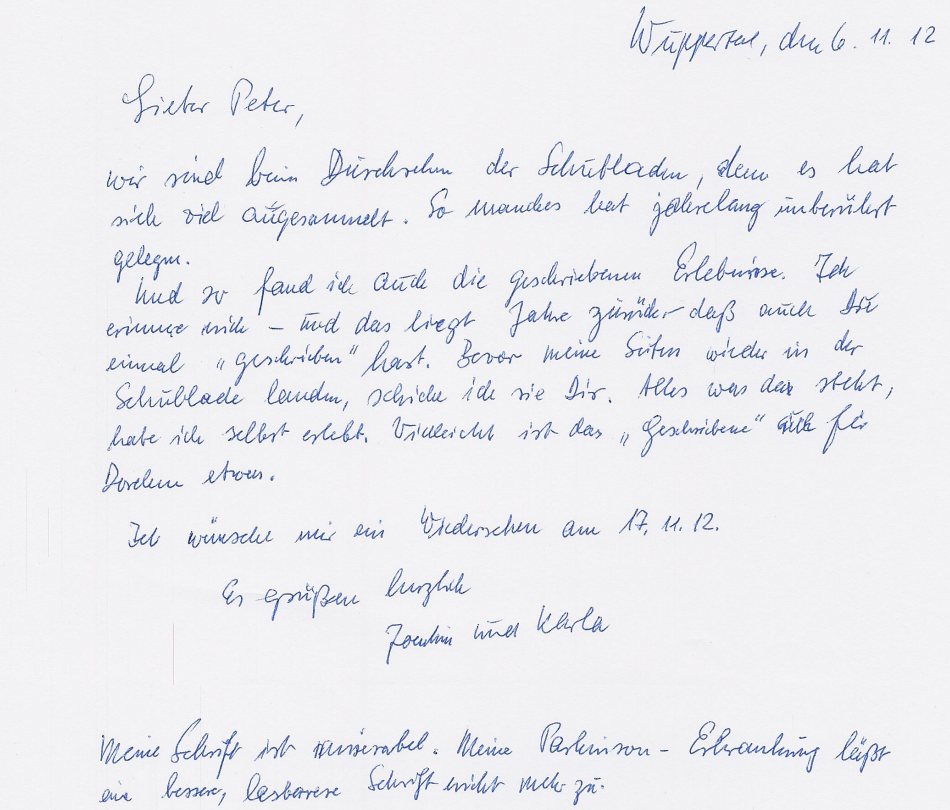 Wuppertal, den 6. 11. 12
Lieber Peter,
wir sind beim Durchsehen der Schubladen, denn es hat
sich viel angesammelt. So manches hat jahrelang unberührt
gelegen.
Und so fand ich auch die geschriebenen Erlebnisse. Ich
erinnere mich – und das liegt Jahre zurück – daß auch Du
einmal „geschrieben“ hast. Bevor meine Seiten wieder in der
Schublade landen, schicke ich sie Dir. Alles was da steht,
habe ich selbst erlebt. Vielleicht ist das „Geschriebene“ auch für
etwas.
Ich wünsche mir ein Wiedersehen am 17. 11. 12.
Es grüßen herzlich
Joachim und Karla
Meine Schrift ist miserabel. Meine Parkinson – Erkrankung läßt
eine bessere, lesbarere Schrift nicht mehr zu.